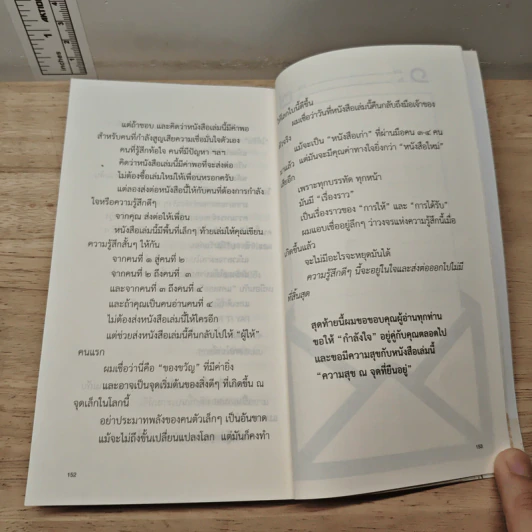 แต่ถ้าชอบ และคิดว่าหนังสือเล่มนี้มีค่าพอ
สำหรับคนที่กำลังสูญเสียความเชื่อมั่นในตัวเอง
คนที่รู้สึกท้อใจ คนที่มีปัญหา ฯลฯ
คิดว่าหนังสือเล่มนี้มีค่าพอที่จะส่งต่อ
ไม่ต้องซื้อเล่มใหม่ให้เพื่อนหรอกครับ
แต่ลองส่งต่อหนังสือนี้ให้กับคนที่ต้องการกำลัง
ใจหรือความรู้สึกดีๆ
จากคุณ ส่งต่อให้เพื่อน
หนังสือเล่มนี้มีพื้นที่เล็กๆ ท้ายเล่มให้คุณเขียน
ความรู้สึกสั้นๆ ให้กัน
จากคนที่ ๑ สู่คนที่ ๒
จากคนที่ ๒ ถึงคนที่ ๓
และจากคนที่ ๓ ถึงคนที่ ๔
และถ้าคุณเป็นคนอ่านคนที่ ๔
ไม่ต้องส่งหนังสือเล่มนี้ให้ใครอีก
แต่ช่วยส่งหนังสือเล่มนี้คืนกลับไปให้ "ผู้ให้"
คนแรก
ผมเชื่อว่านี่คือ "ของขวัญ" ที่มีค่ายิ่ง
และอาจเป็นจุดเริ่มต้นของสิ่งดีๆ ที่เกิดขึ้น ณ
จุดเล็กในโลกนี้
อย่าประมาทพลังของคนตัวเล็กๆ เป็นอันขาด
แม้จะไม่ถึงขั้นเปลี่ยนแปลงโลก แต่มันก็คงทำ
152
โลกใบนี้ดีขึ้น
ผมเชื่อว่าวันที่หนังสือเล่มนี้คืนกลับถึงมือเจ้าของ
แม้จะเป็น "หนังสือเก่า" ที่ผ่านมือคน ๓-๔ คน
มาแล้ว แต่มันจะมีคุณค่าทางใจยิ่งกว่า "หนังสือใหม่"
เสียอีก
เพราะทุกบรรทัด ทุกหน้า
มันมี "เรื่องราว"
เป็นเรื่องราวของ "การให้" และ "การได้รับ"
ผมแอบเชื่ออยู่ลึกๆ ว่าวงจรแห่งความรู้สึกนี้เมื่อ
เกิดขึ้นแล้ว
จะไม่มีอะไรจะหยุดมันได้
ความรู้สึกดีๆ นี้จะอยู่ในใจและส่งต่อออกไปไม่มี
ที่สิ้นสุด
สุดท้ายนี้ผมขอขอบคุณผู้อ่านทุกท่าน
ขอให้ "กำลังใจ" อยู่คู่กับคุณตลอดไป
และขอมีความสุขกับหนังสือเล่มนี้
"ความสุข ณ จุดที่ยืนอยู่"